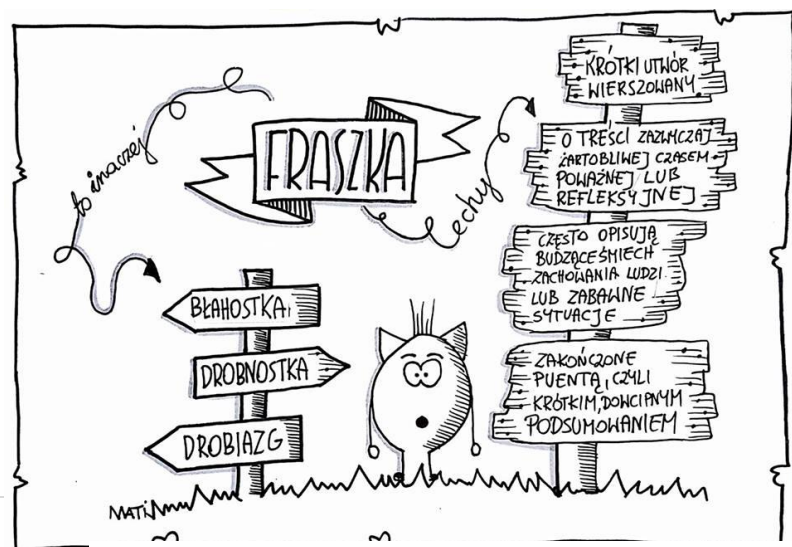 FRASZKA
to inaczej
BŁAHOSTKA,
DROBNOSTKA
DROBIAZG
cechy
KRÓTKI UTWÓR
WIERSZOWANY
O TREŚCI ZAZWYCZAJ
ŻARTOBLIWEJ CZASEM
POWAŻNEJ LUB
REFLEKSYJNEJ
CZĘSTO OPISUJĄ
BUDZĄCE ŚMIECH
ZACHOWANIA LUDZI
LUB ZABAWNE
SYTUACJE
ZAKOŃCZONE
PUENTĄ, CZYLI
KRÓTKIM, DOWCIPNYM
PODSUMOWANIEM
MATI